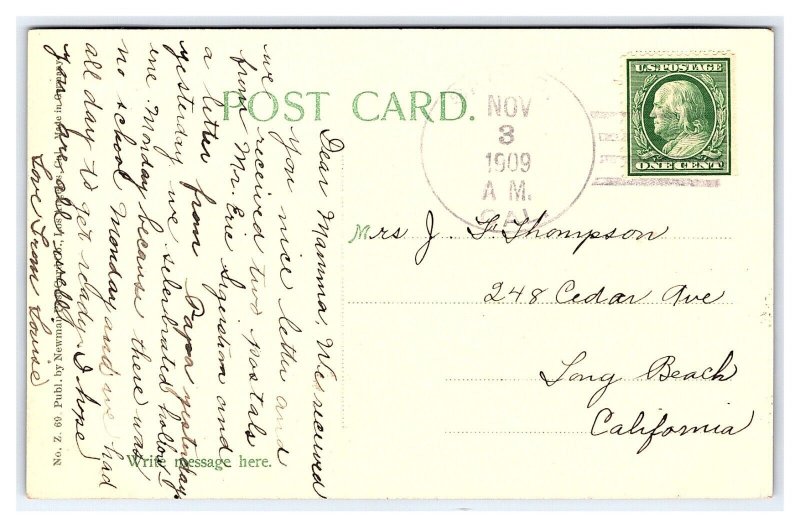 POST CARD.
U.S. POSTAGE
ONE CENT
NOV
3
1909
A M.
CAL
Mrs J. F. Thompson
248 Cedar Ave
Long Beach
California
Dear Mamma, We recieved
you nice letter and
we received two postals
from Mr. Eric and
a letter from Papa yesterday
yesterday we selebrated hollow
ene Monday because there was
no school Monday and we had
all day to get ready. I hope
you are all well.
Love from Louise
Write message here.
No. Z. 60 Publ. by Newman